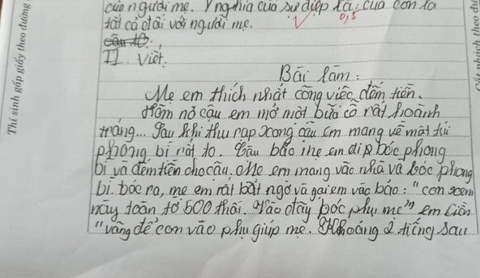 của người mẹ. Ý nghĩa của sự điệp là: của con là
tất cả đối với người mẹ. 0,5
câu 10.
II. Viết.
Bài làm:
Mẹ em thích nhất công việc đếm tiền.
Hôm nọ cậu em mở một bữa cỗ rất hoành
tráng... Sau khi thu rạp xong cậu em mang về một túi
phong bì rất to. Cậu bảo mẹ em đi bóc phong
bì và đếm tiền cho cậu. Mẹ em mang vào nhà và bóc phong
bì. bóc ra, mẹ em rất bất ngờ và gọi em vào bảo: "con xem
này toàn tờ 500 thôi. Vào đây bóc phụ mẹ" em liền
"vâng để con vào phụ giúp mẹ. Khoảng 2 tiếng sau
Thí sinh gấp giấy theo đường
gấp giấy theo đư